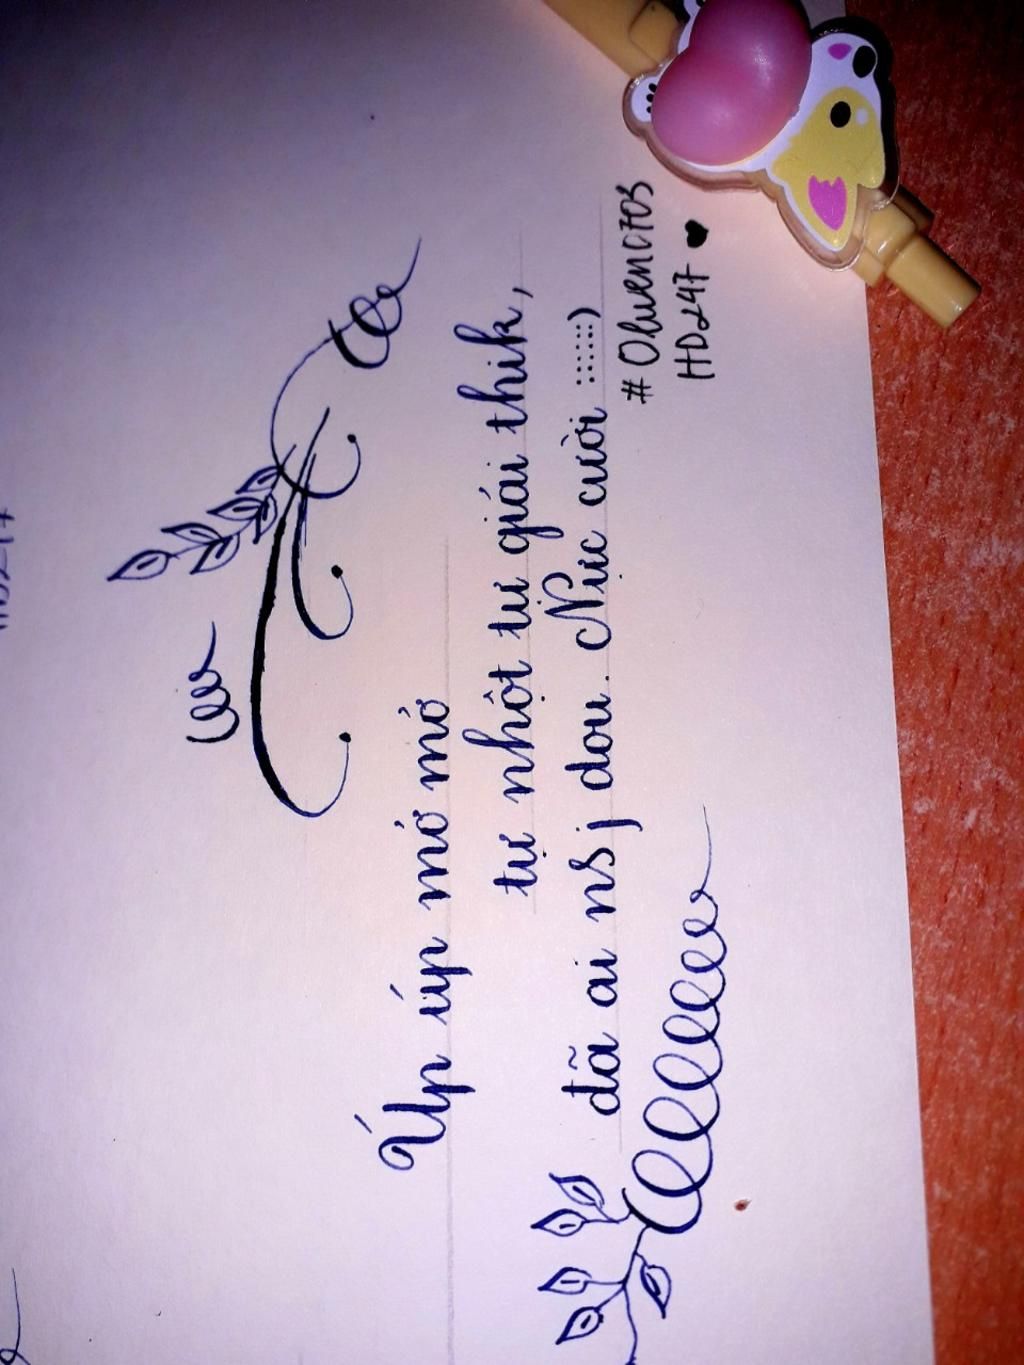 Úp úp mớ mớ
tự nhột tự giải thik,
đã ai nS j dou. Nực cười ::::::)
# Oluen0703
HD247 ♥